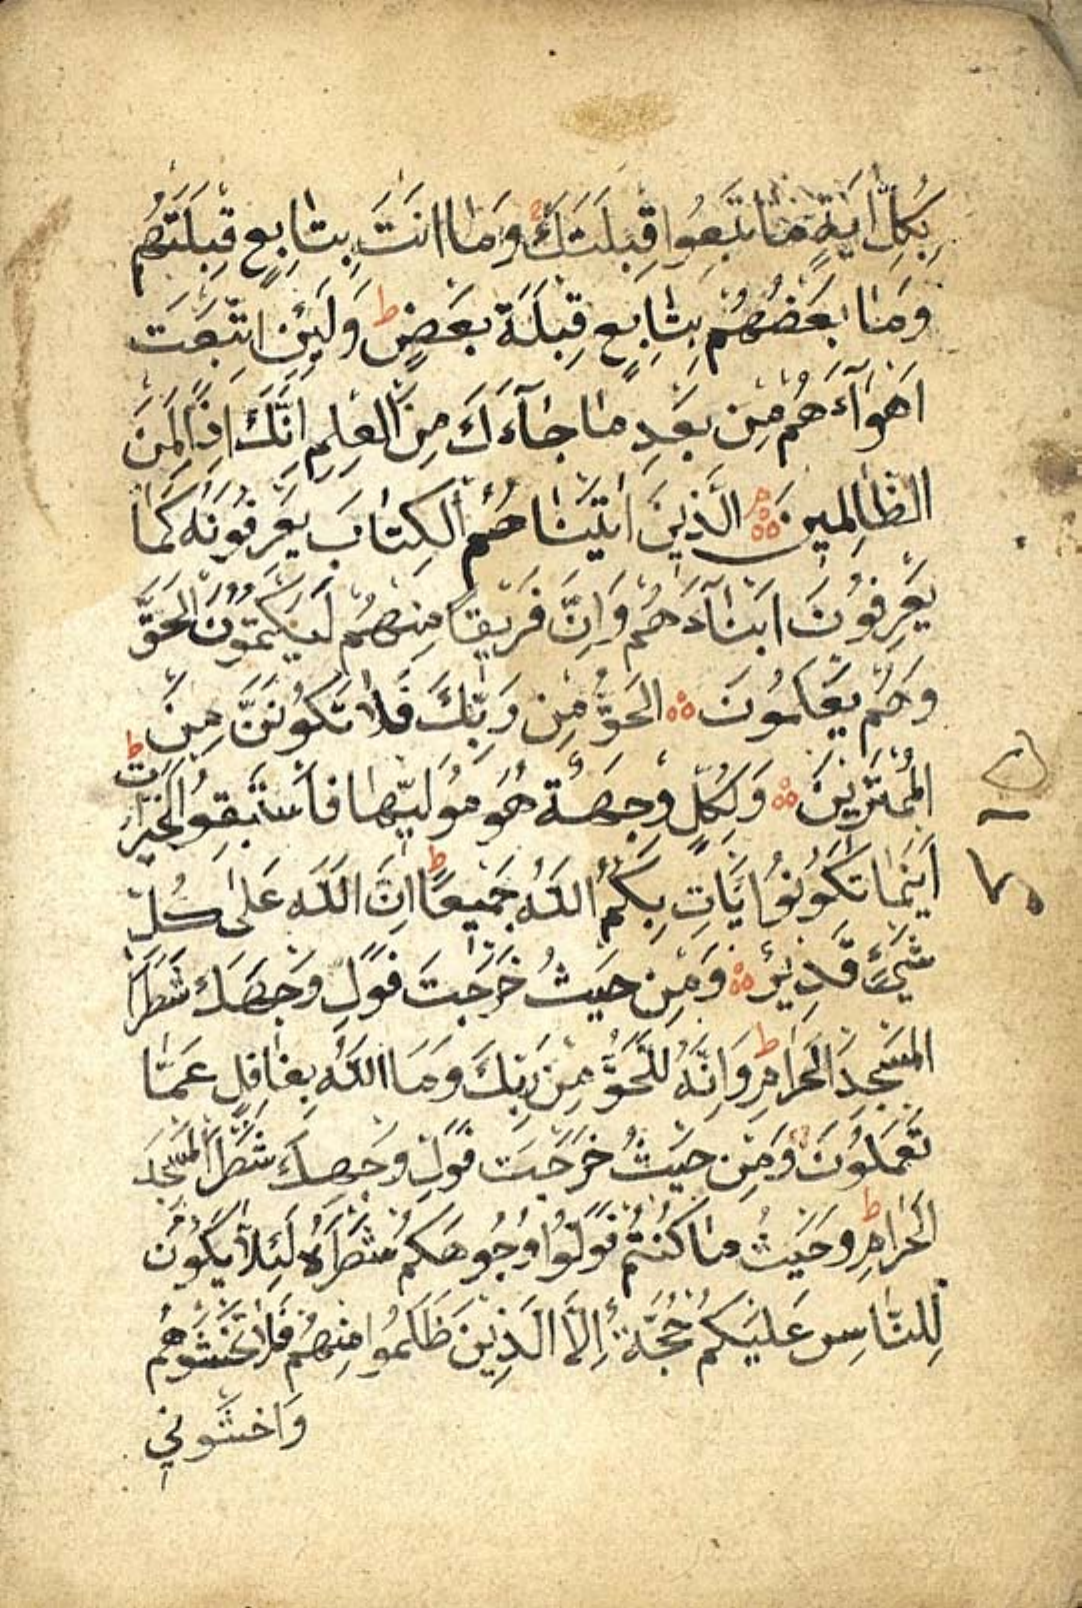 بِكُلِّ اٰيَةٍ مَا تَبِعُوا قِبْلَتَكَ وَمَا اَنْتَ بِتَابِعٍ قِبْلَتَهُمْ
وَمَا بَعْضُهُمْ بِتَابِعٍ قِبْلَةَ بَعْضٍ ط وَلَئِنِ اتَّبَعْتَ
اَهْوَآءَهُمْ مِنْ بَعْدِ مَا جَآءَكَ مِنَ الْعِلْمِ اِنَّكَ اِذًا لَمِنَ
الظَّالِمِينَ الَّذِينَ اٰتَيْنَاهُمُ الْكِتَابَ يَعْرِفُونَهُ كَمَا
يَعْرِفُونَ اَبْنَآءَهُمْ وَاِنَّ فَرِيقًا مِنْهُمْ لَيَكْتُمُونَ الْحَقَّ
وَهُمْ يَعْلَمُونَ الْحَقُّ مِنْ رَبِّكَ فَلَا تَكُونَنَّ مِنَ
الْمُمْتَرِينَ وَلِكُلٍّ وِجْهَةٌ هُوَ مُوَلِّيهَا فَاسْتَبِقُوا الْخَيْرَاتِ ط
اَيْنَمَا تَكُونُوا يَأْتِ بِكُمُ اللّٰهُ جَمِيعًا ط اِنَّ اللّٰهَ عَلٰى كُلِّ
شَيْءٍ قَدِيرٌ وَمِنْ حَيْثُ خَرَجْتَ فَوَلِّ وَجْهَكَ شَطْرَ
الْمَسْجِدِ الْحَرَامِ ط وَاِنَّهُ لَلْحَقُّ مِنْ رَبِّكَ وَمَا اللّٰهُ بِغَافِلٍ عَمَّا
تَعْمَلُونَ وَمِنْ حَيْثُ خَرَجْتَ فَوَلِّ وَجْهَكَ شَطْرَ الْمَسْجِدِ
الْحَرَامِ ط وَحَيْثُ مَا كُنْتُمْ فَوَلُّوا وُجُوهَكُمْ شَطْرَهُ لِئَلَّا يَكُونَ
لِلنَّاسِ عَلَيْكُمْ حُجَّةٌ اِلَّا الَّذِينَ ظَلَمُوا مِنْهُمْ فَلَا تَخْشَوْهُمْ
وَاخْشَوْنِي